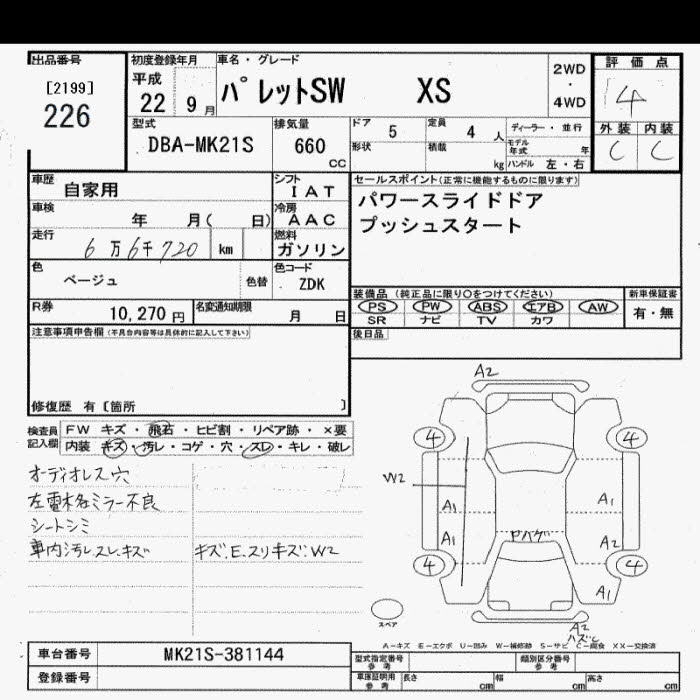 出品番号
[2199]
226
初度登録年月
平成
22 9月
車名・グレード
パレットSW XS
2WD
・
4WD
評価点
4
外装 内装
C C
型式
DBA-MK21S
排気量
660
cc
ドア 5
定員 4 人
ディーラー・並行
形状
積載 kg
モデル年式 年
ハンドル 左・右
車歴 自家用
シフト
IAT
車検 年 月( 日)
冷房
AAC
走行 6万6千720 km
燃料
ガソリン
色 ベージュ
色替
色コード
ZDK
R券 10,270円
名変通知期限 月 日
セールスポイント(正常に機能するものに限ります)
パワースライドドア
プッシュスタート
装備品(純正品に限り○をつけてください)
PS PW ABS エアB AW
SR ナビ TV カワ
新車保証書
有・無
後日品
注意事項申告欄(不具合内容等は具体的に記入して下さい)
修復歴 有〔箇所 〕
検査員記入欄
FW キズ・飛石・ヒビ割・リペア跡・×要
内装 キズ・汚レ・コゲ・穴・スレ・キレ・破レ
オーディオレス穴
左電格ミラー不良
シートシミ
車内汚レスレキズ
キズ.E.スリキズ.W2
A2
4 4
W2
A1 A1
A1 ドハゲ A2
4 4
A1
スペア
A2
A-キズ E-エクボ U-凹み W-補修跡 S-サビ C-腐食 XX-交換済
車台番号 MK21S-381144
登録番号
型式指定番号
参考
類別区分番号
参考
車庫証明用
参考
長さ cm
幅 cm
高さ cm